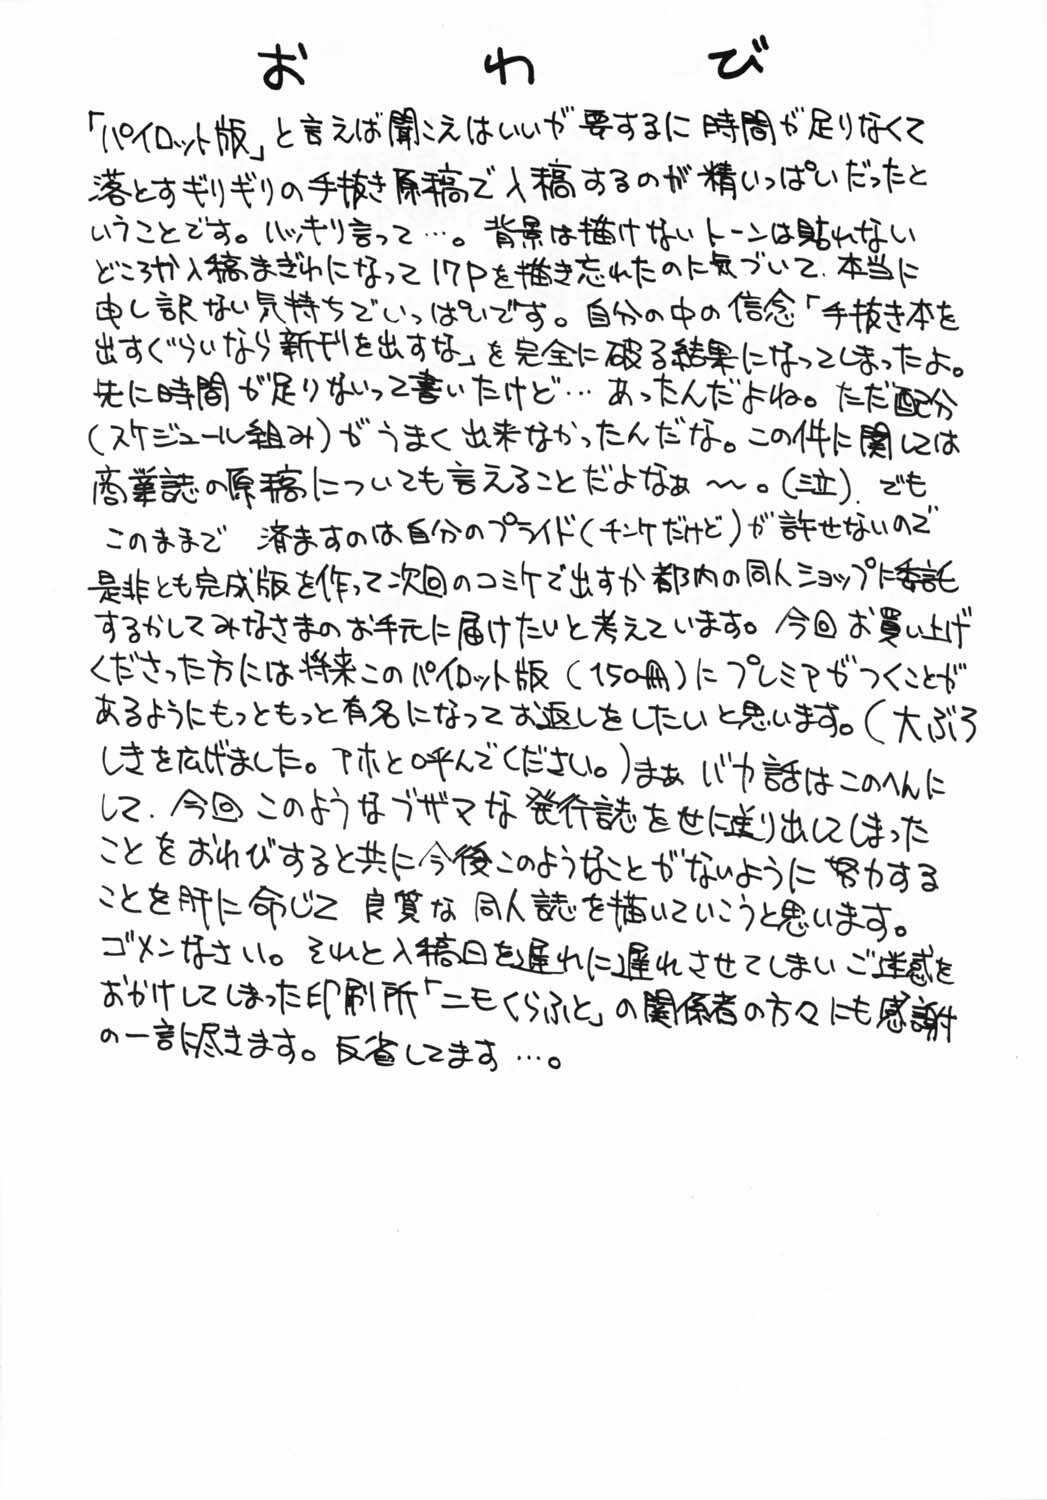 おわび
「パイロット版」と言えば聞こえはいいが要するに時間が足りなくて
落とすギリギリの手抜き原稿で入稿するのが精いっぱいだったと
いうことです。ハッキリ言って…。背景は描けないトーンは貼れない
どころか入稿まぎわになって17Pを描き忘れたのに気づいて、本当に
申し訳ない気持ちでいっぱいです。自分の中の信念「手抜き本を
出すぐらいなら新刊を出すな」を完全に破る結果になってしまったよ。
先に時間が足りないって書いたけど…あったんだよね。ただ配分
(スケジュール組み)がうまく出来なかったんだな。この件に関しては
商業誌の原稿についても言えることだよなぁ〜〜。(泣)、でも
このままで 済ますのは自分のプライド(チンケだけど)が許せないので
是非とも完成版を作って次回のコミケで出すか都内の同人ショップに委託
するかしてみなさまのお手元に届けたいと考えています。今回お買い上げ
くださった方には将来このパイロット版(150冊)にプレミアがつくことが
あるようにもっともっと有名になってお返しをしたいと思います。(大ぶろ
しきを広げました。アホと呼んでください。)まぁバカ話はこのへんに
して、今回このようなブザマな発行誌をせに送り出してしまった
ことをおわびすると共に今後このようなことがないように努力する
ことを肝に命じて良質な同人誌を描いていこうと思います。
ゴメンなさい。それと入稿日を遅れに遅れさせてしまいご迷惑を
おかけしてしまった印刷所「ニモくらふと」の関係者の方々にも感謝
の一言に尽きます。反省してます…。